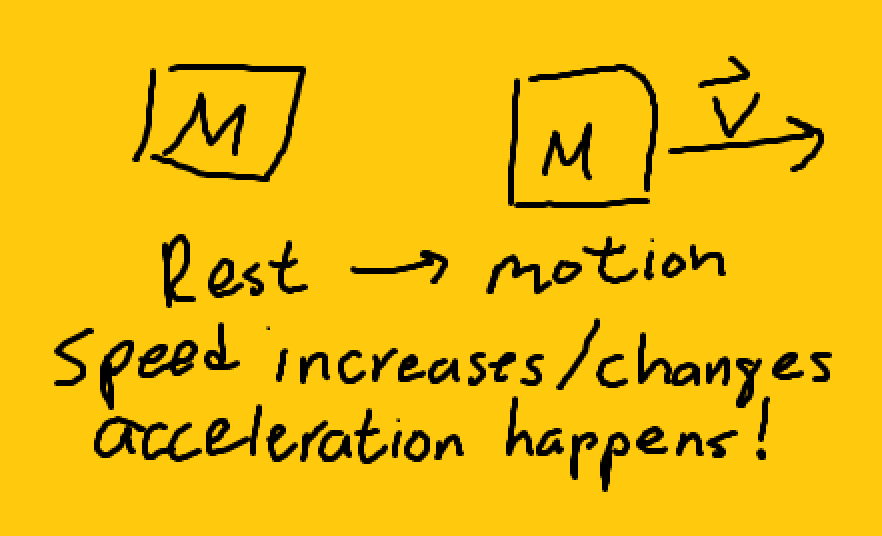 M M v⃗
Rest → motion
Speed increases/changes
acceleration happens!